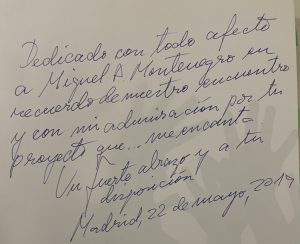 Dedicado con todo afecto
a Miguel A Montenegro en
recuerdo de nuestro encuentro
y con mi admiración por tu
proyecto que... me encanta.
Un fuerte abrazo y a tu
disposición
Madrid, 22 de mayo, 2019